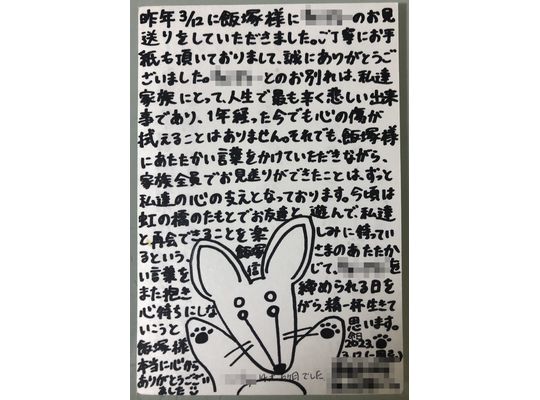 昨年3/12に飯塚様に のお見
送りをしていただきました。ご丁寧にお手
紙も頂いておりまして、誠にありがとうご
ざいました。 とのお別れは、私達
家族にとって、人生で最も辛く悲しい出来
事であり、1年経った今でも心の傷が
拭えることはありません。それでも、飯塚様
にあたたかい言葉をかけていただきながら、
家族全員でお見送りができたことは、ずっと
私達の心の支えとなっております。今頃は
虹の橋のたもとでお友達と、遊んで、私達
と再会できることを楽しみに待ってい
るという、飯塚さまのあたたか
い言葉を信じて、 を
また抱き締められる日を
心待ちにしながら、精一杯生きて
いこうと思います。
飯塚様
本当に心から
ありがとうござい
ました
2023.
でした